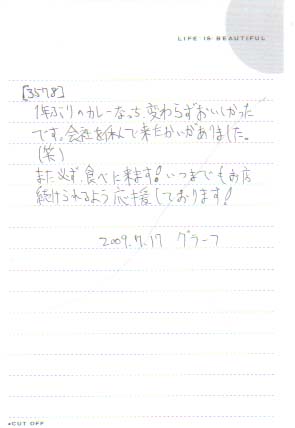 LIFE IS BEAUTIFUL
[3578]
1年ぶりのカレーなっち、変わらずおいしかった
です。会社を休んで来たかいがありました。
(笑)
また必ず、食べに来ます!いつまでもお店
続けられるよう応援しております!
2009.7.17 グラーフ
CUT OFF